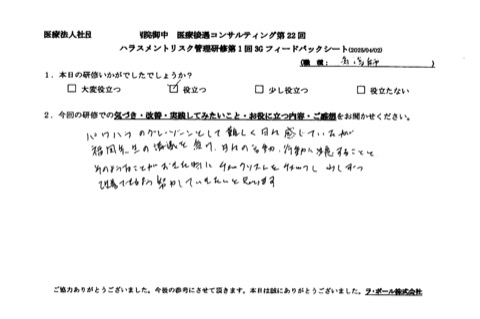 医療法人社団 病院御中 医療接遇コンサルティング第22回
ハラスメントリスク管理研修第1回3Gフィードバックシート(2025/04/02)
(職種: 看護師 )
1.本日の研修いかがでしたでしょうか?
□大変役立つ ☑役立つ □少し役立つ □役立たない
2.今回の研修での気づき・改善・実践してみたいこと・お役に立つ内容・ご感想をお聞かせください。
パワハラのグレーゾーンとして難しく日々感じていたが
福岡先生の講義を受け、日々の言動、行動に注意することと
そのようなことがおきた時にチェックリストをチェックし 少しずつ
改善できるよう努力していきたいと思います
ご協力ありがとうございました。今後の参考にさせて頂きます。本日は誠にありがとうございました。ラ・ポール株式会社